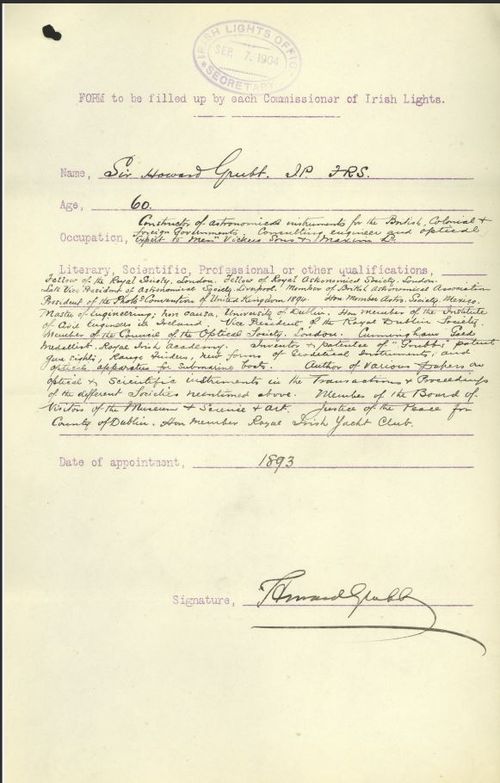 IRISH LIGHTS OFFICE
SEP. 7. 1904
SECRETARY
FORM to be filled up by each Commissioner of Irish Lights.
Name, Sir Howard Grubb. JP FRS.
Age, 60.
Constructor of astronomical instruments for the British, Colonial &
foreign Governments. Consulting engineer and optical
Occupation, expert to Messrs Vickers Sons & Maxim Ld.
Literary, Scientific, Professional or other qualifications,
Fellow of the Royal Society, London. Fellow of Royal Astronomical Society. London.
Late Vice President of Astronomical Society. Liverpool. Member of British Astronomical Association
President of the Photo: Convention of United Kingdom 1894. Hon Member Astro. Society Mexico.
Master of Engineering, hon causa, University of Dublin. Hon member of the Institute
of Civil Engineers in Ireland. Vice President of the Royal Dublin Society.
Member of the Council of the Optical Society. London. Cunningham Gold
Medallist. Royal Irish Academy. Inventor & patentee of "Grubb's" patent
gun sights, Range finders, new forms of Geodetical Instruments, and
optical apparatus for Submarine boats. Author of various papers on
optical & Scientific instruments in the Transactions & Proceedings
of the different Societies mentioned above. Member of the Board of
Visitors of the Museum & Science & Art. Justice of the Peace for
County of Dublin. Hon member Royal Irish Yacht Club.
Date of appointment, 1893
Signature, Howard Grubb